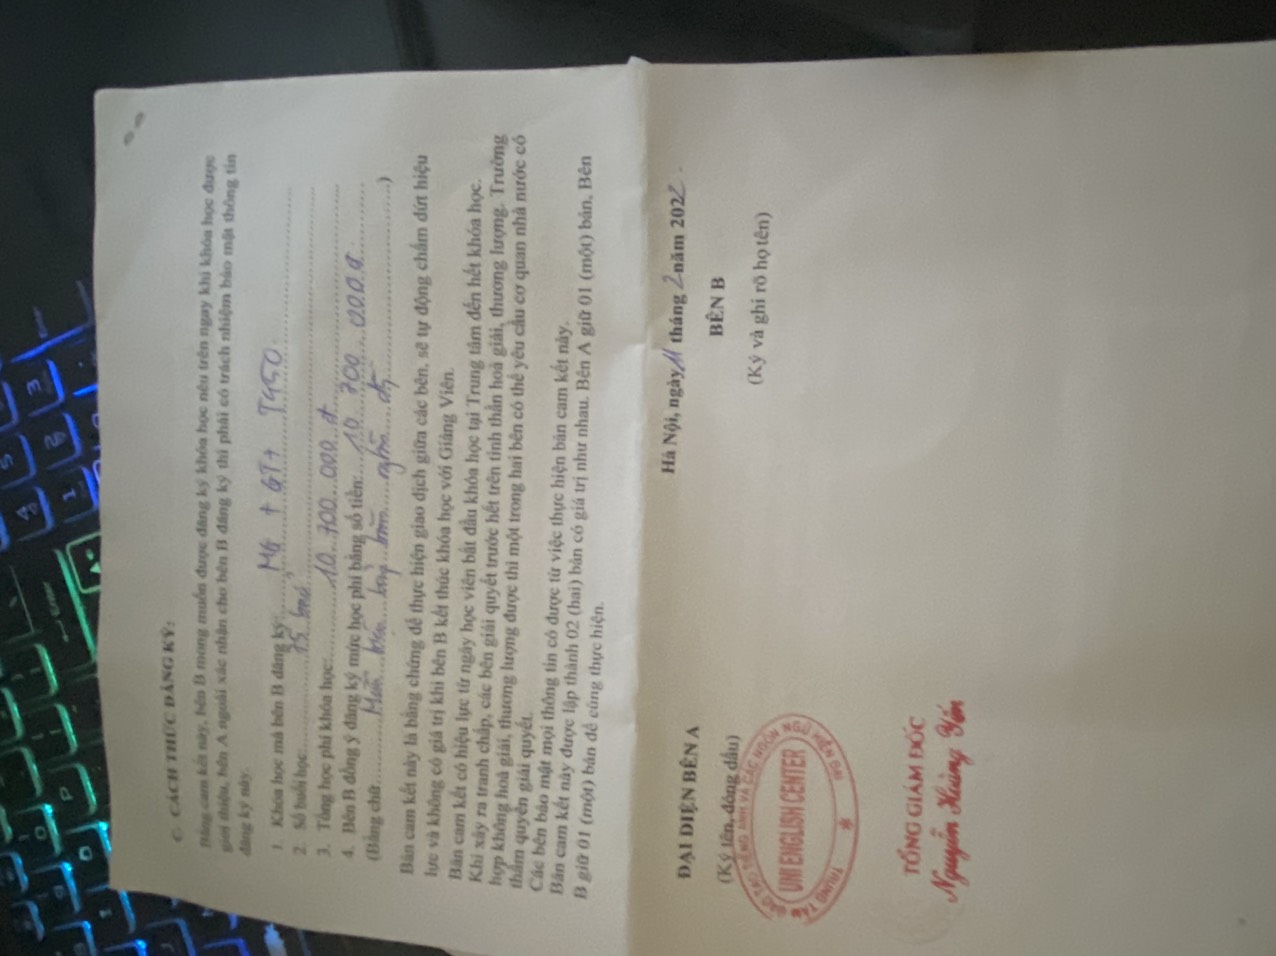 C. CÁCH THỨC ĐĂNG KÝ:
Bằng cam kết này, bên B mong muốn được đăng ký khóa học nêu trên ngay khi khóa học được
giới thiệu, bên A ngoài xác nhận cho bên B đăng ký thì phải có trách nhiệm bảo mật thông tin
đăng ký này.
1. Khóa học mà bên B đăng ký: MG + GT + T450.
2. Số buổi học: 75
3. Tổng học phí khóa học: 10.700.000 đ
4. Bên B đồng ý đăng ký mức học phí bằng số tiền: 10 700 000 đ
(Bằng chữ: Mười bảy trăm nghìn )
Bản cam kết này là bằng chứng để thực hiện giao dịch giữa các bên, sẽ tự động chấm dứt hiệu
lực và không có giá trị khi bên B kết thúc khóa học với Giảng Viên.
Bản cam kết có hiệu lực từ ngày học viên bắt đầu khóa học tại Trung tâm đến hết khóa học.
Khi xảy ra tranh chấp, các bên giải quyết trước hết trên tinh thần hoà giải, thương lượng. Trường
hợp không hoà giải, thương lượng được thì một trong hai bên có thể yêu cầu cơ quan nhà nước có
thẩm quyền giải quyết.
Các bên bảo mật mọi thông tin có được từ việc thực hiện bản cam kết này.
Bản cam kết này được lập thành 02 (hai) bản có giá trị như nhau. Bên A giữ 01 (một) bản, Bên
B giữ 01 (một) bản để cùng thực hiện.
Hà Nội, ngày 11 tháng 2 năm 2022.
ĐẠI DIỆN BÊN A
(Ký tên, đóng dấu)
BÊN B
(Ký và ghi rõ họ tên)
UNI ENGLISH CENTER
TỔNG GIÁM ĐỐC
Nguyễn Hoàng Yến